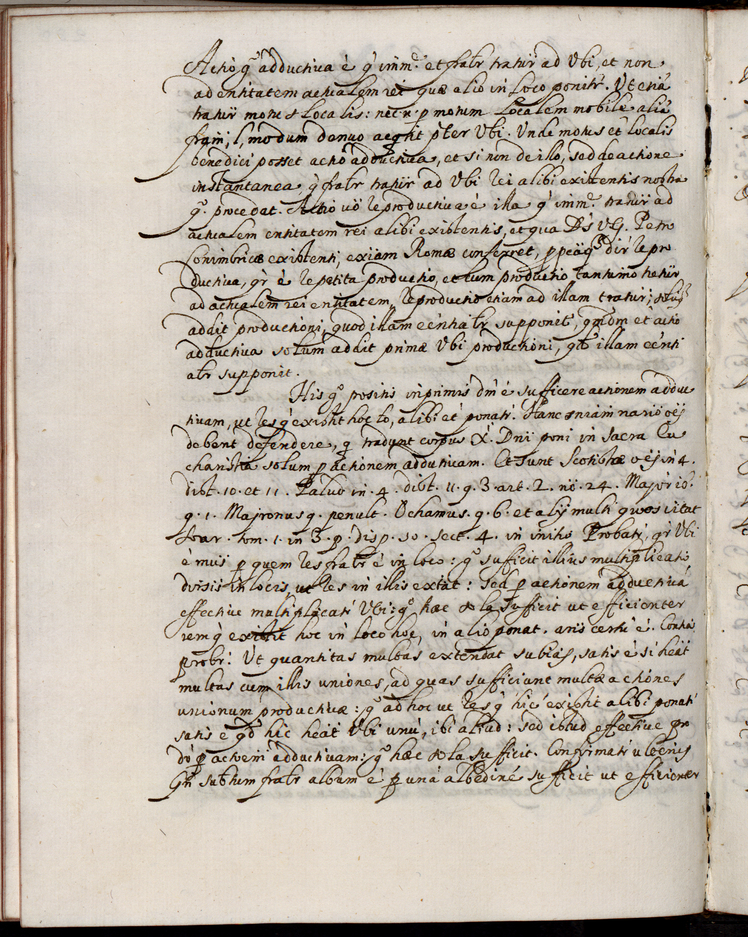 Actio q̃ adductiva ẽ q̃ imm.ᵉ et fratr trahir ad Vbi, et non
ad entitatem actualem rei quæ alio in loco ponitr. Ut etiã
trahir motus localis: nec n. p motum localem mobile aliã
l, modum denuo pter Vbi. Unde motus et localis
benedici posset actio adductiva, et si non de illo, sed de actione
instantanea q̃ fratr trahir ad Vbi rei alibi existentis nostra
q.ᵒ procedat. Actio vò reproductiva ẽ illa q̃ imm.ᵉ trahir ad
actualem entitatem rei alibi existentis, et qua D's V.G. Petro
Conimbricæ existenti, etiam Romæ conferret, dir repro
ductiva, qr ẽ repetita productio, et cum productio tantumò trahir
ad actualem rei entitatem, reproductio etiam ad illam trahir;
addit productioni, quod illam supponit, et actio
adductiva solum addit primæ Vbi productioni, illam
supponit.
His q.ᵒ positis inprimis ẽ sufficere actionem adduc
tivam, ut res q̃ existit hoc lo, alibi et ponatr. Hanc
debent defendere, q̃ tradunt corpus X. Dni poni in sacra Eu
charistia solum p actionem adductivam. Et sunt Scotistæ in 4.
dist. 10. et 11. Palud in 4. dist. 11. q. 3. art. 2. nº. 24. Major
q. 1. Majronus q. penult. Ochamus q. 6. et alij multi quos citat
Soar. tom. 1. in 3. p. disp. 50. sect. 4. in initio. Probatr, qr Vbi
ẽ p quem res fratr ẽ in loco: q.ᵒ sufficit illius multiplicatio
divisis in locis, ut res in illis extet: sed p actionem adductivã
effective multiplicatr Vbi: q.ᵒ hæc sola sufficit ut efficienter
rem q̃ existit hoc in loco hoc, in alio ponat. ans certũ ẽ. Contia
probr: Ut quantitas multas extendat subias, satis ẽ si heãt
multas cum illis uniones, ad quas sufficiunt multæ actiones
unionum productivæ: q.ᵒ ad hoc ut res q̃ hic existit alibi ponatr
satis ẽ qd hic heãt Vbi unũ, ibi aliud: sed istud effective
p actionem adductivam: q.ᵒ hæc sola sufficit. Confirmatr
subtum fratr album ẽ p unã albedinẽ sufficit ut efficienter